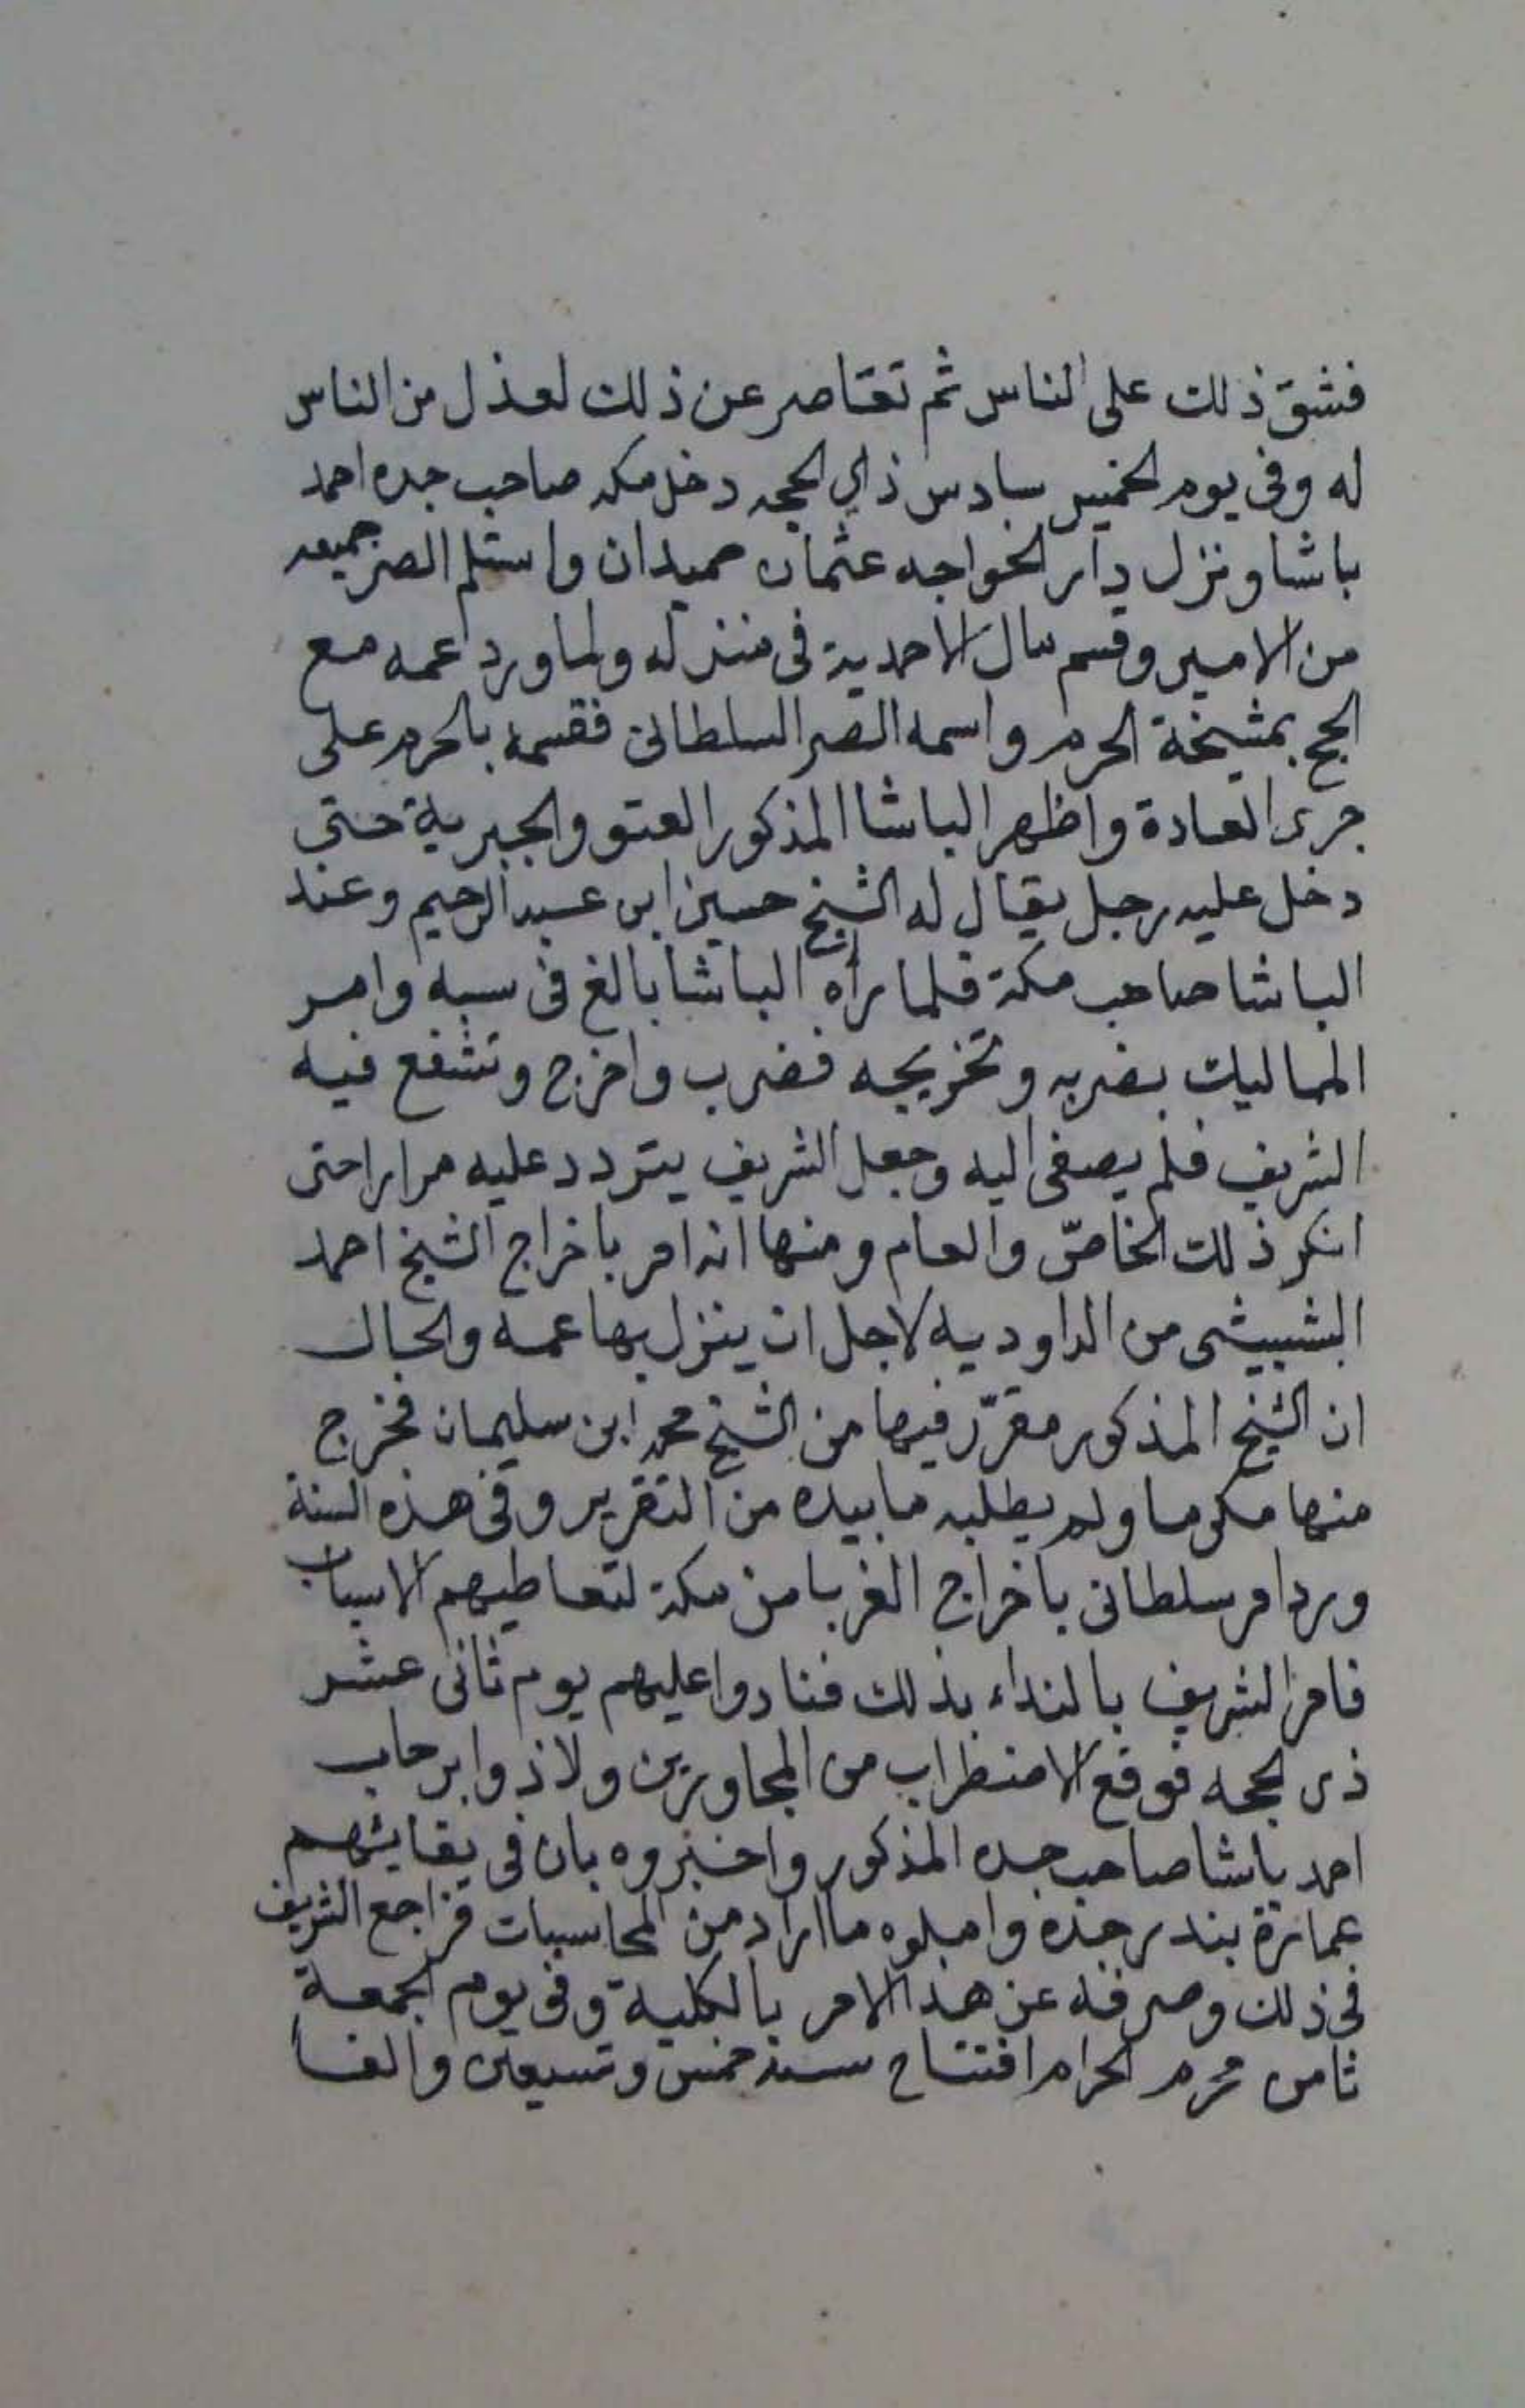 فشق ذلك على الناس ثم تقاصر عن ذلك لعذل من الناس
له وفى يوم الخميس سادس ذي الحجه دخل مكه صاحب جده احمد
باشا ونزل دار الخواجه عثمان حميدان واستلم الصر جميعه
من الامير وقسم مال الاحمدية فى منزله ولما ورد عمه مع
الحج بمشيخة الحرم واسمه الصر السلطانى فقسمه بالحرم على
جرى العادة واظهر الباشا المذكور العتو والجبرية حتى
دخل عليه رجل يقال له الشيخ حسين ابن عبد الرحيم وعند
الباشا صاحب مكة فلما رأه الباشا بالغ فى سبه وامر
المماليك بضربه وتخريجه فضرب واخرج وتشفع فيه
الشريف فلم يصغى اليه وجعل الشريف يتردد عليه مرارا حتى
انكر ذلك الخاصّ والعام ومنها انه امر باخراج الشيخ احمد
البشبيشى من الداوديه لاجل ان ينزل بها عمه والحال
ان الشيخ المذكور مقرّر فيها من الشيخ محمد ابن سليمان فخرج
منها مكرما ولم يطلبه ما بيده من التقرير وفى هذه السنة
ورد امر سلطانى باخراج الغربا من مكة لتعاطيهم الاسباب
فامر الشريف بالنداء بذلك فنادوا عليهم يوم ثانى عشر
ذى الحجه فوقع الاضطراب من المجاورين ولاذوا برحاب
احمد باشا صاحب جده المذكور واخبروه بان فى بقايئهم
عمارة بندر جده واملوه ما اراد من المحاسبات فراجع الشريف
فى ذلك وصرفه عن هذا الامر بالكلية وفى يوم الجمعة
ثامن محرم الحرام افتتاح سنة خمس وتسعين والف